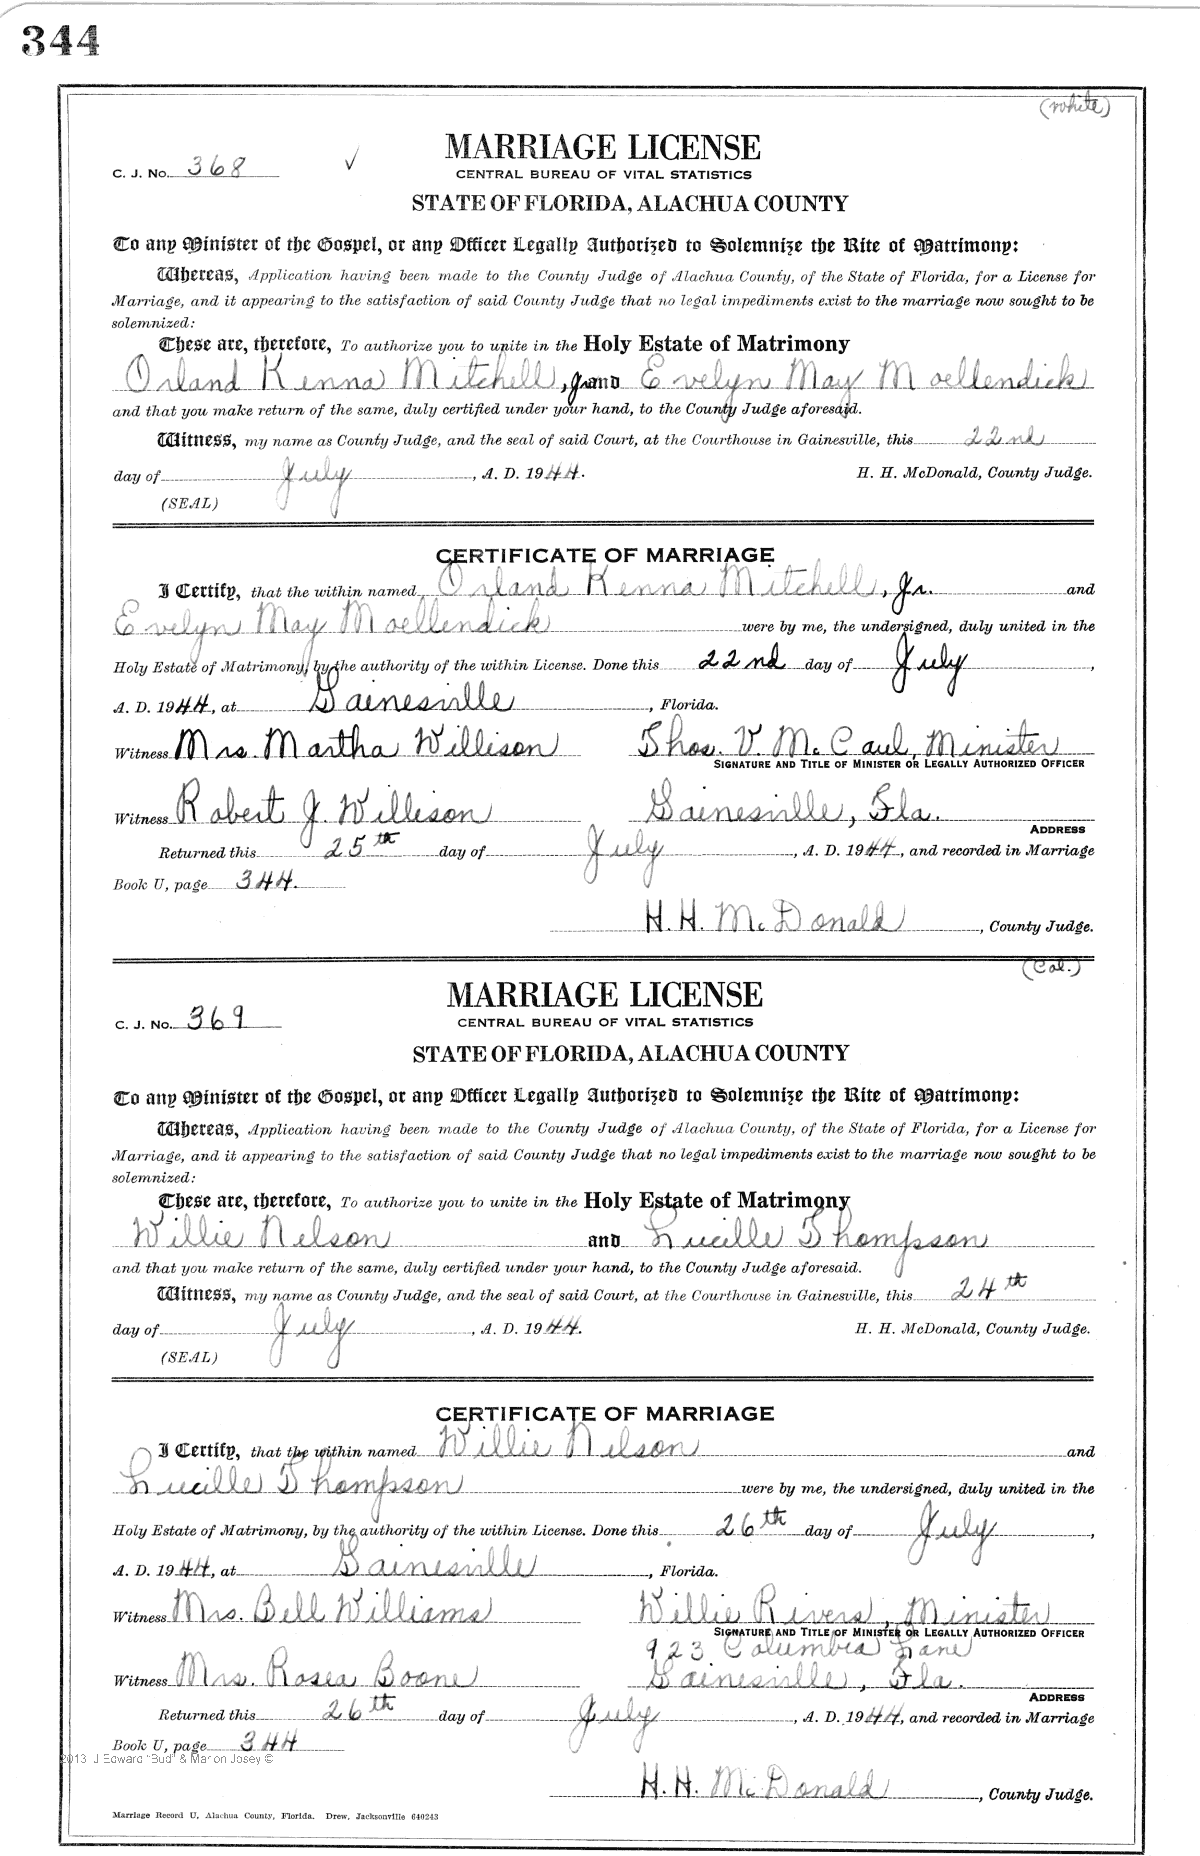 344
(white)
MARRIAGE LICENSE
C. J. No. 368 ✓
CENTRAL BUREAU OF VITAL STATISTICS
STATE OF FLORIDA, ALACHUA COUNTY
To any Minister of the Gospel, or any Officer Legally Authorized to Solemnize the Rite of Matrimony:
Whereas, Application having been made to the County Judge of Alachua County, of the State of Florida, for a License for
Marriage, and it appearing to the satisfaction of said County Judge that no legal impediments exist to the marriage now sought to be
solemnized:
These are, therefore, To authorize you to unite in the Holy Estate of Matrimony
Orland Kenna Mitchell, Jr. and Evelyn May Moellendick
and that you make return of the same, duly certified under your hand, to the County Judge aforesaid.
Witness, my name as County Judge, and the seal of said Court, at the Courthouse in Gainesville, this 22nd
day of July, A. D. 1944. H. H. McDonald, County Judge.
(SEAL)
CERTIFICATE OF MARRIAGE
I Certify, that the within named Orland Kenna Mitchell, Jr. and
Evelyn May Moellendick were by me, the undersigned, duly united in the
Holy Estate of Matrimony, by the authority of the within License. Done this 22nd day of July,
A. D. 1944, at Gainesville, Florida.
Witness Mrs. Martha Willison Thos. V. McCaul, Minister
SIGNATURE AND TITLE OF MINISTER OR LEGALLY AUTHORIZED OFFICER
Witness Robert J. Willison Gainesville, Fla.
ADDRESS
Returned this 25th day of July, A. D. 1944, and recorded in Marriage
Book U, page 344.
H. H. McDonald, County Judge.
(Col.)
MARRIAGE LICENSE
C. J. No. 369
CENTRAL BUREAU OF VITAL STATISTICS
STATE OF FLORIDA, ALACHUA COUNTY
To any Minister of the Gospel, or any Officer Legally Authorized to Solemnize the Rite of Matrimony:
Whereas, Application having been made to the County Judge of Alachua County, of the State of Florida, for a License for
Marriage, and it appearing to the satisfaction of said County Judge that no legal impediments exist to the marriage now sought to be
solemnized:
These are, therefore, To authorize you to unite in the Holy Estate of Matrimony
Willie Nelson and Lucille Thompson
and that you make return of the same, duly certified under your hand, to the County Judge aforesaid.
Witness, my name as County Judge, and the seal of said Court, at the Courthouse in Gainesville, this 24th
day of July, A. D. 1944. H. H. McDonald, County Judge.
(SEAL)
CERTIFICATE OF MARRIAGE
I Certify, that the within named Willie Nelson and
Lucille Thompson were by me, the undersigned, duly united in the
Holy Estate of Matrimony, by the authority of the within License. Done this 26th day of July,
A. D. 1944, at Gainesville, Florida.
Witness Mrs. Bell Williams Willie Rivers, Minister
SIGNATURE AND TITLE OF MINISTER OR LEGALLY AUTHORIZED OFFICER
923 Columbia Lane
Witness Mrs. Rosea Boone Gainesville, Fla.
ADDRESS
Returned this 26th day of July, A. D. 1944, and recorded in Marriage
Book U, page 344
2013 J Edward "Bud" & Marion Josey ©
H. H. McDonald, County Judge.
Marriage Record U, Alachua County, Florida. Drew, Jacksonville 640243